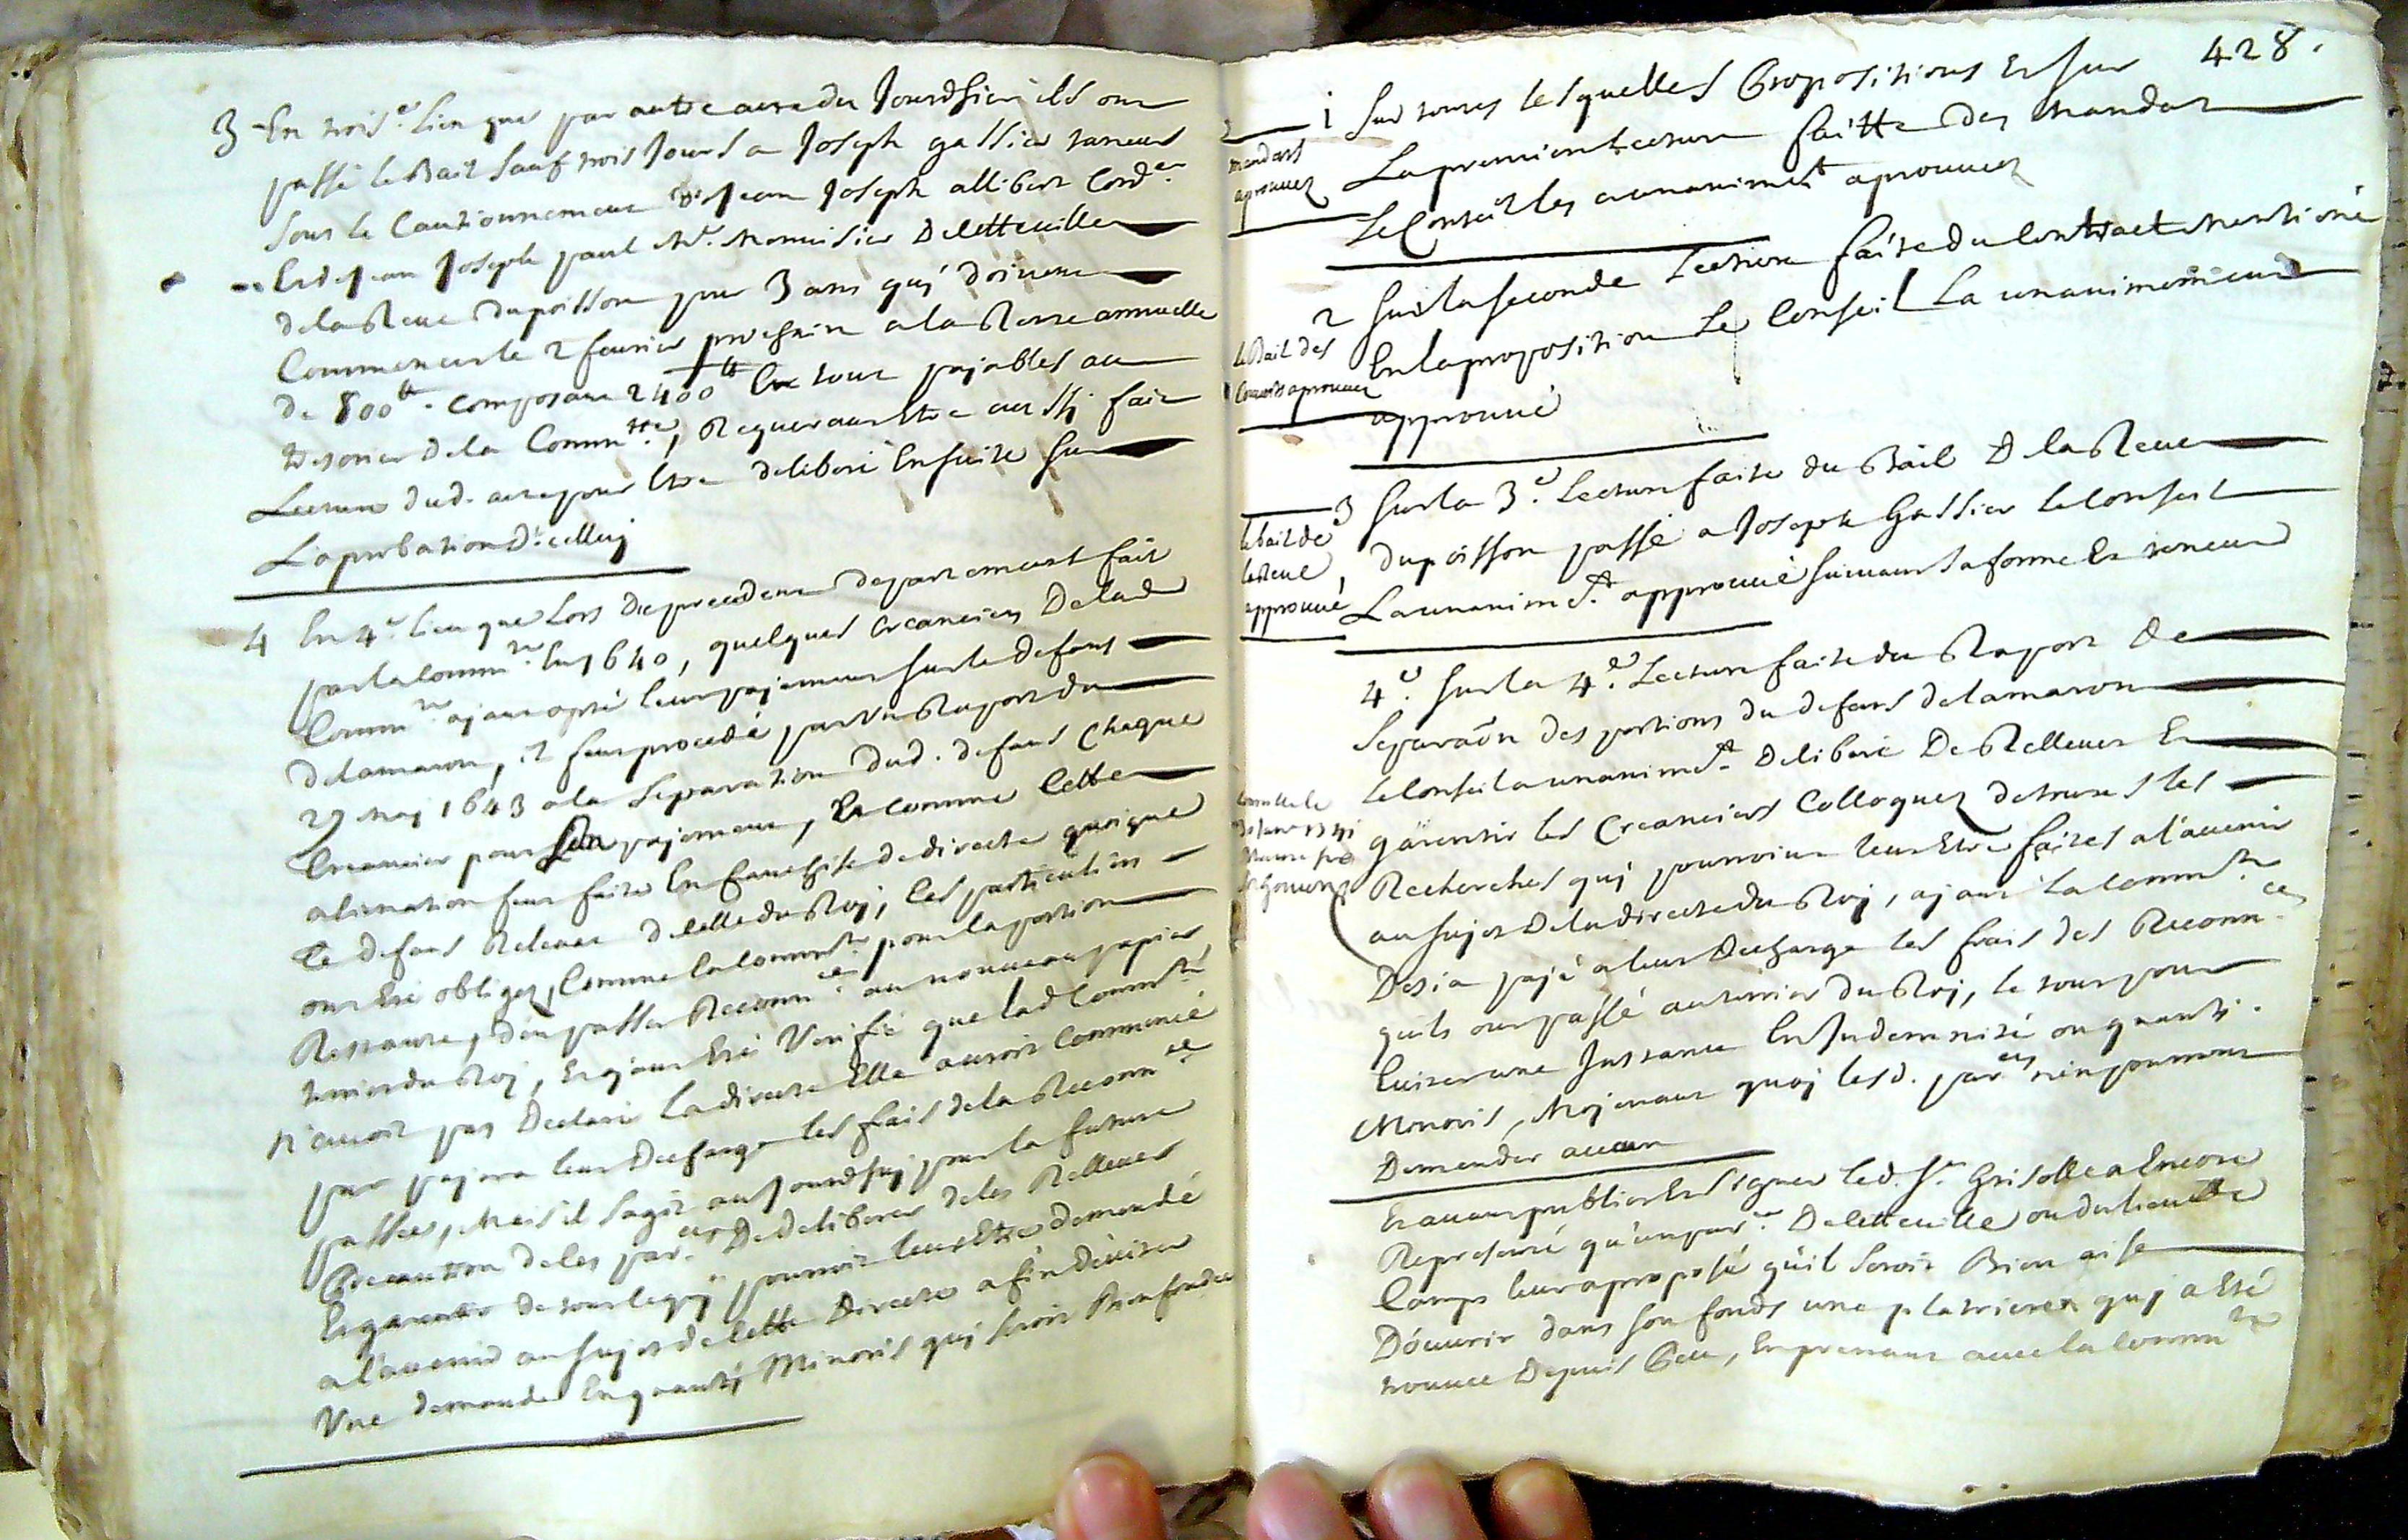 3 En trois.e lieu que par autre acte du Jourdhier ils ont
passé le Bail sauf trois Jours a Joseph gassier taneur
sous le Cautionnement de Jean Joseph allibert Cord.er
Et de Jean Joseph paul M.e Menuisier De cette ville
de la Reve du poisson pour 3 ans quj doivent
Commencer le 2 fevrier prochain a la Rente annuelle
de 800 tt. composant 2400 tt En tout payables au
Tresorier de la Commté, Requerant Etre aussi fait
Lecture dud. acte pour Etre deliberé Ensuite sur
L'aprobation D'icelluj
4 En 4.e lieu que Lors du precedent departement fait
par la Comm.té En 1640, quelques Creanciers De lad.
Comm.té ajant opté leur pajement sur le defens
de lamaron, il feut procedé par un Raport du
27 maj 1643 a la Separation dud. defens Chaque
Creancier pour Son pajement, Et comme Cette
alienation feut faite En franchise de directe quoique
le defens Releve de celle du Roj, les particuliers
ont Eté obligez, Comme la Comm.té pour la portion
Restante, d'en passer Reconn.ce au nouveau papier
terrier du Roj, Et ajant Eté Verifié que lad Comm.té
n'avoit pas Declaré la directe Elle auroit Commencé
par pajer a leur Decharge les frais de la Reconn.ce
passée, Mais il s'agit aujourdhuj pour la future
Precaution de les par.ers De deliberer de les Rellever
Et garentir de tout ce quj pourroit leur Etre demandé
a l'avenir au sujet de Cette Directe afin d'eviter
Une demande En quanti Minoris quj seroit Bien fondée
428.
1 Sur toutes lesquelles Propositions Et sur
La premiere Lecture faitte des Mandats
Le Conseil les a unanime.t aprouvez
mandats
aprouvez
2 Sur la seconde Lecture faite du Contract mentioné
En la proposition Le Conseil La unanimement
approuvé
le Bail des
aprouvé
3 Sur la 3.e Lecture faite du Bail De la Reve
du poisson passé a Joseph Gassier le Conseil
La unanim.t approuvé suivant Sa forme Et teneur
le bail de
la Reve
approuvé
4.e Sur la 4.e Lecture faite du Raport De
Separaõn des portions du defens de lamaron
le Conseil a unanim.t Deliberé De Rellever Et
garentir les Creanciers Colloquez de toutes les
Recherches quj pourroint leur Etre faites a l'avenir
au sujet De la directe du Roj, ajant la Comm.té
Desia pajé a leur Decharge les frais des Reconn.ces
quils ont passé au terrier du Roj, le tout pour
Eviter une Instance En Indemnité ou quanti
Minoris, Mojenant quoj lesd. par.ers n'en pourront
Demander aucun
Et avant publier Et signer led. S.r Grisolle a Encore
Representé qu'un par.er De cette ville ou du lieu de
Camps leur a proposé quil seroit Bien aise
D'ouvrir dans son fonds une platriere quj a Eté
trouvée Depuis Peu, En prenant avec la Comm.té